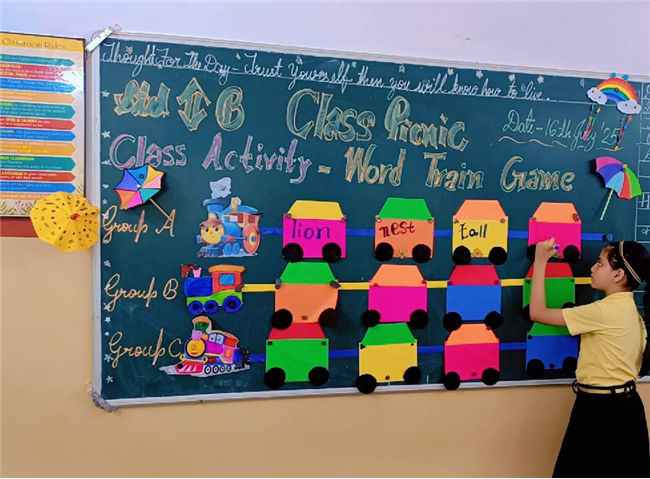 Classroom Rules
Thought For The Day - Trust Yourself then you will know how to live.
Std I B
Class Picnic
Date - 16th July 25
Class Activity - Word Train Game
Group A
lion nest tall
Group B
Group C